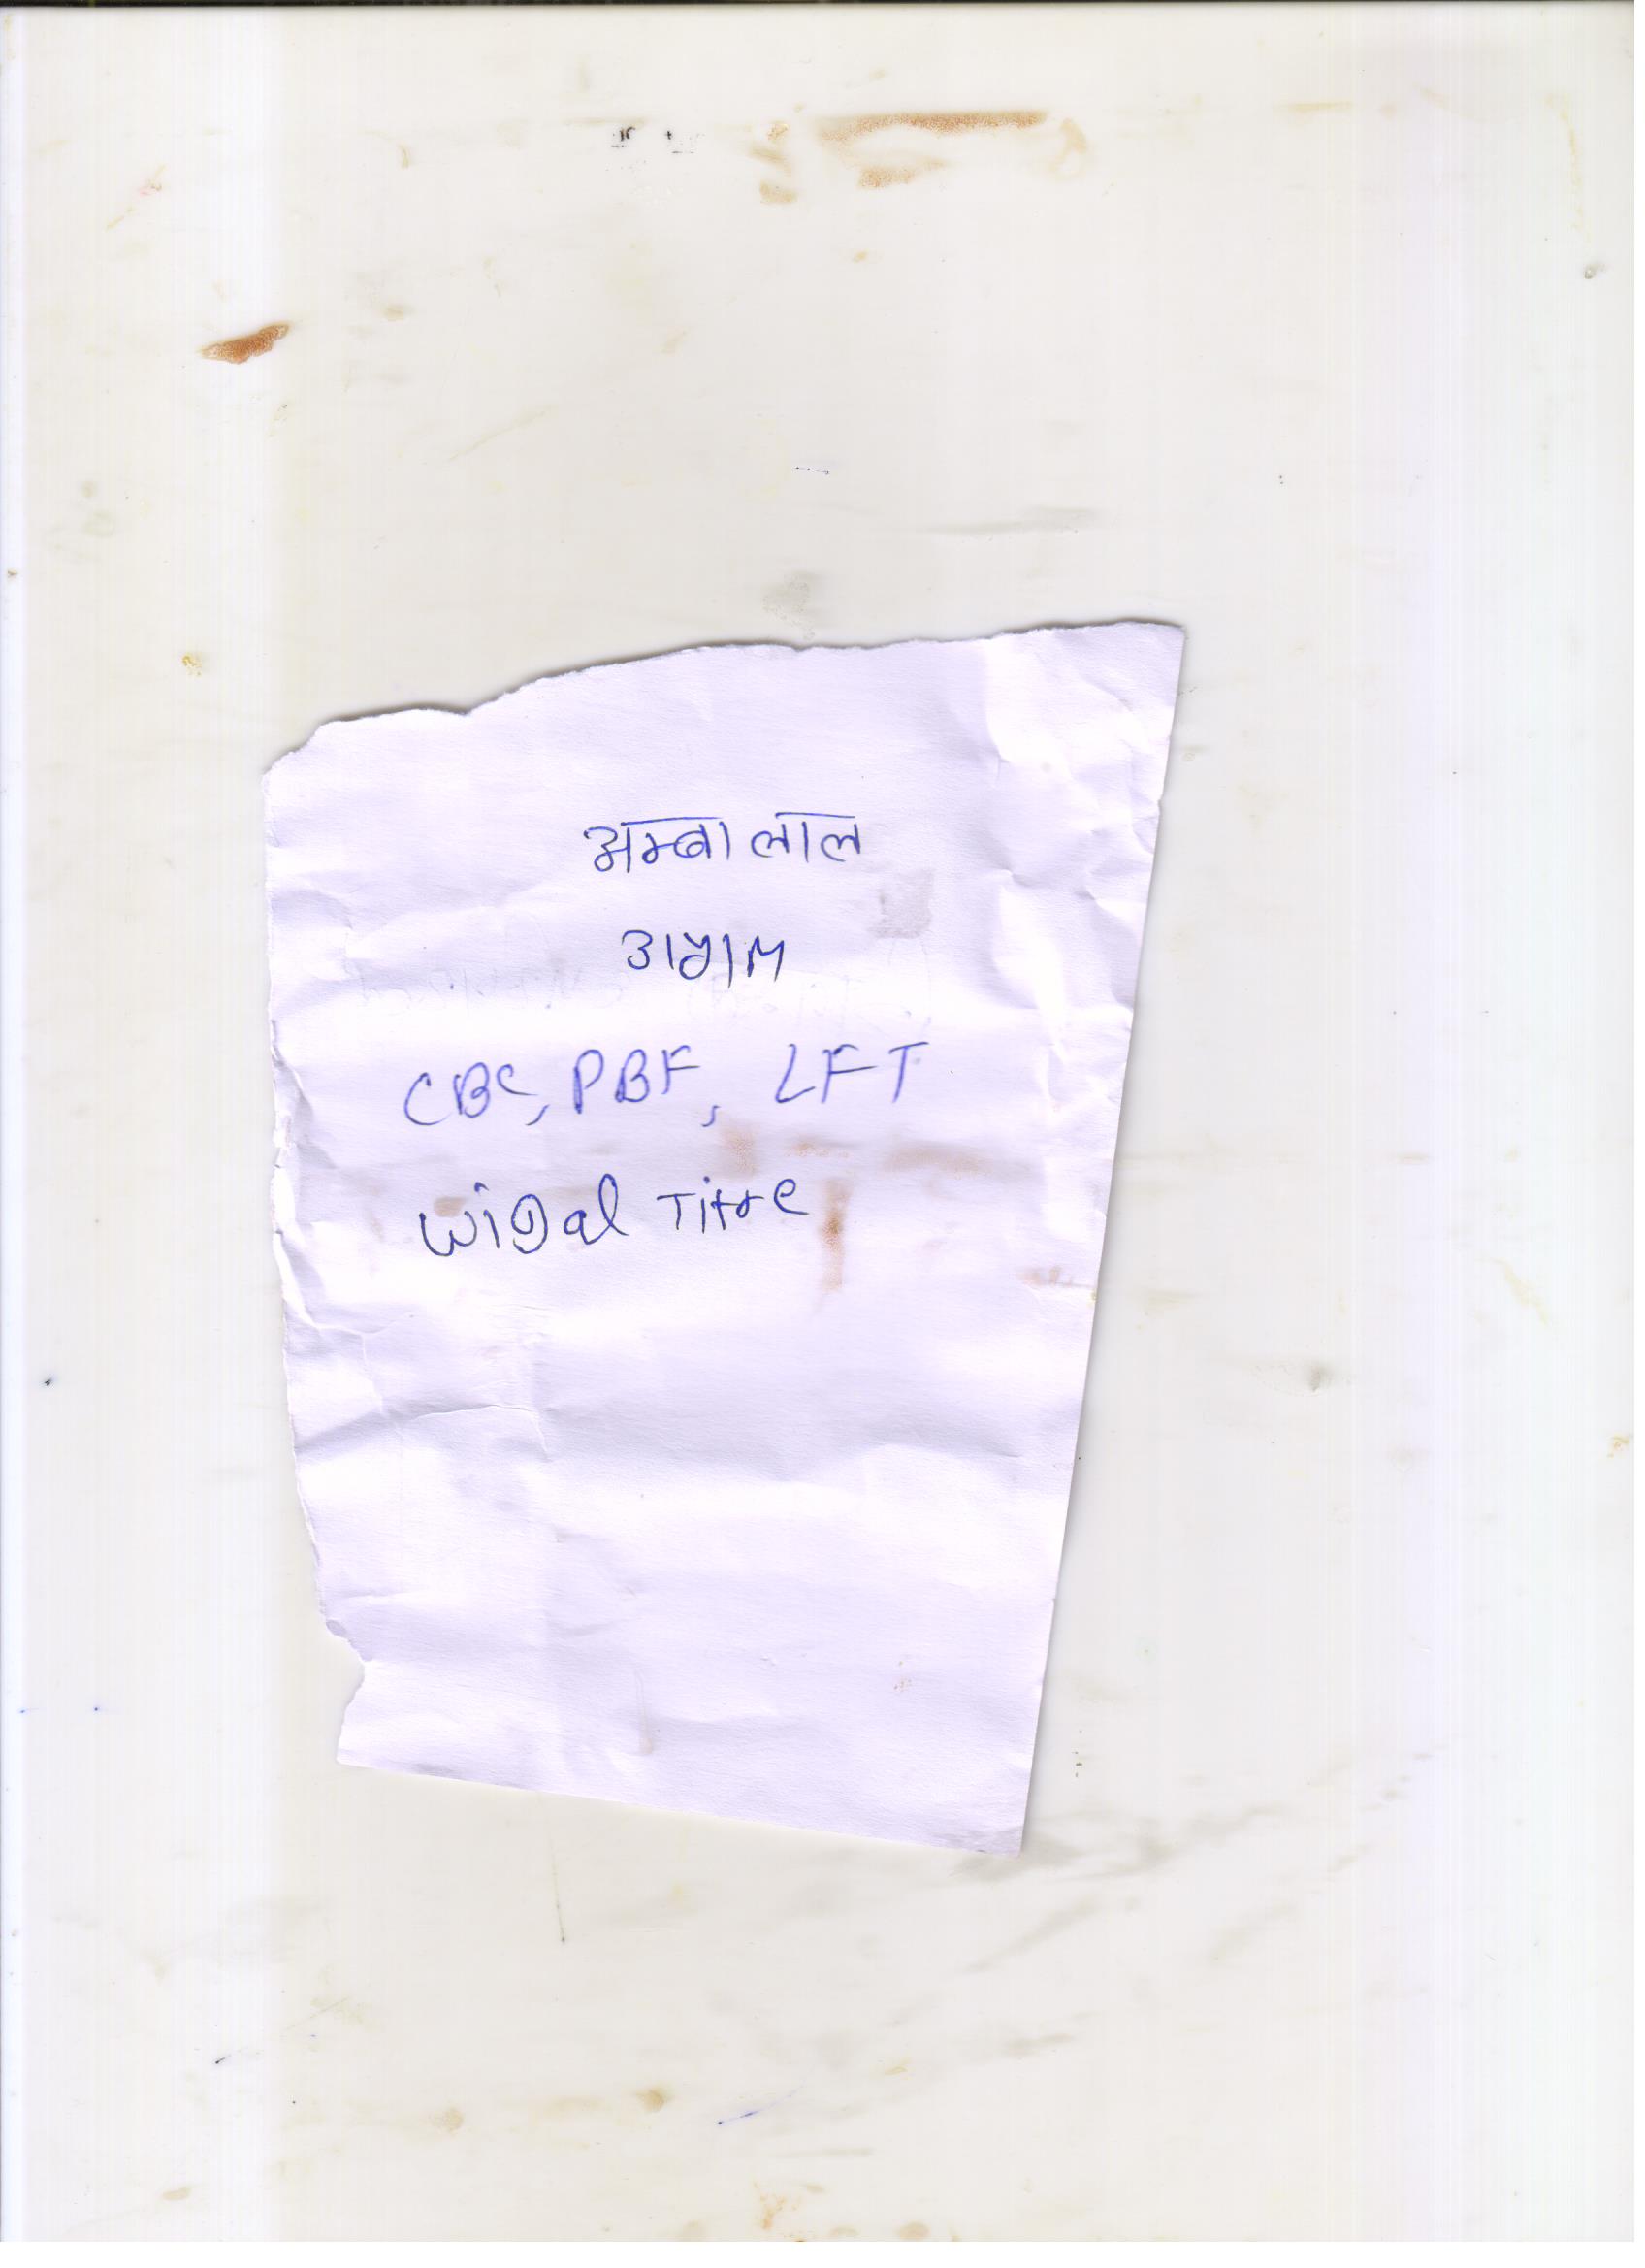 अम्बा लाल
CBC, PBF, LFT
widal Titre